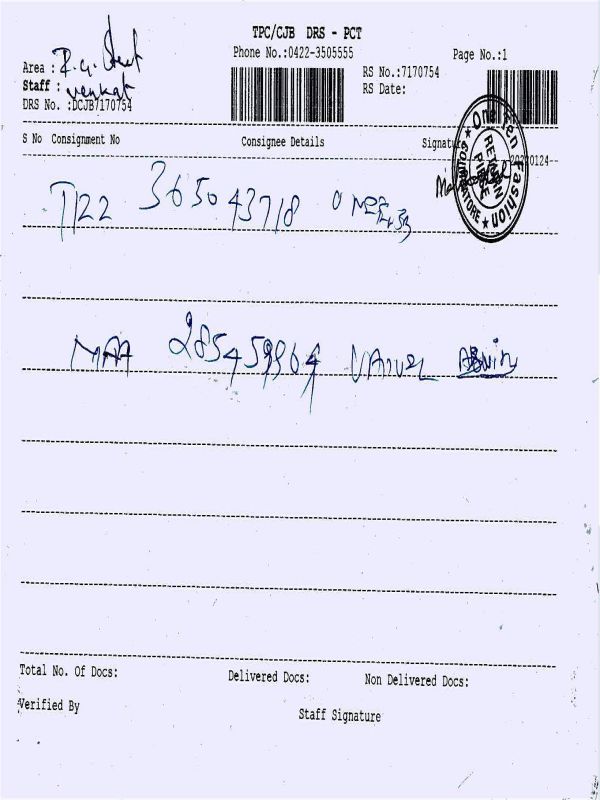 TPC/CJB DRS - PCT
Phone No.:0422-3505555
Page No.:1
Area : R.G. Street
Staff : Venkat
DRS No. :DCJB7170754
RS No.:7170754
RS Date:
S No Consignment No Consignee Details Signature
20220124
One Ten Fashion
COIMBATORE
T122 365043718
MAA
Total No. Of Docs: Delivered Docs: Non Delivered Docs:
Verified By
Staff Signature